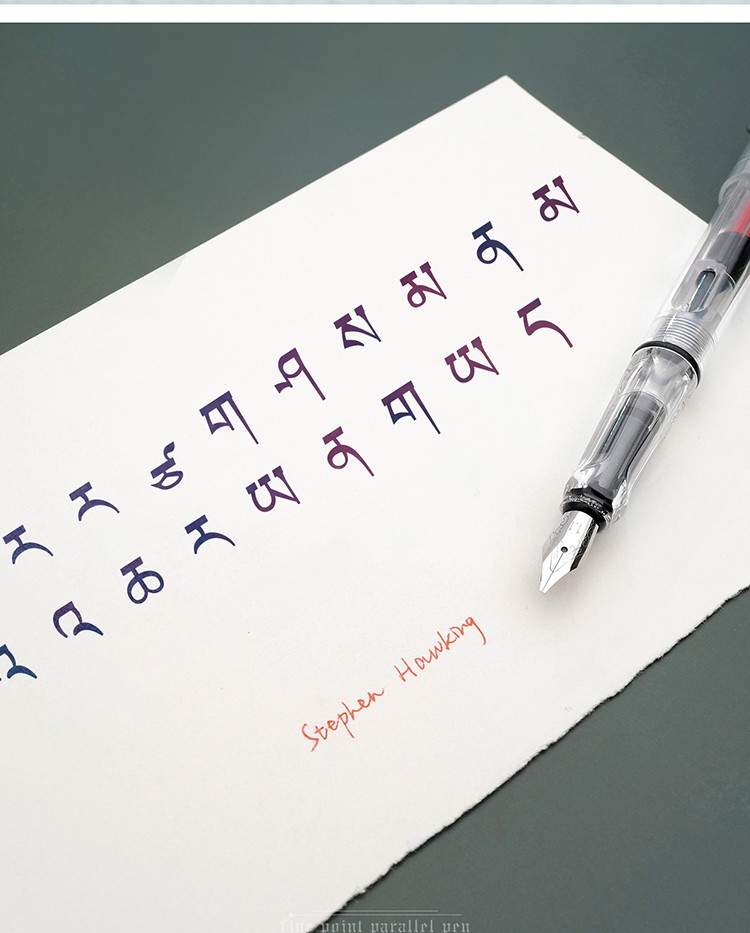 ར ར ཙ ག ཤ ས མ ན མ
འ ཆ ར ཡ ན ག ཡ ད
Stephen Hawking
fine point parallel pen